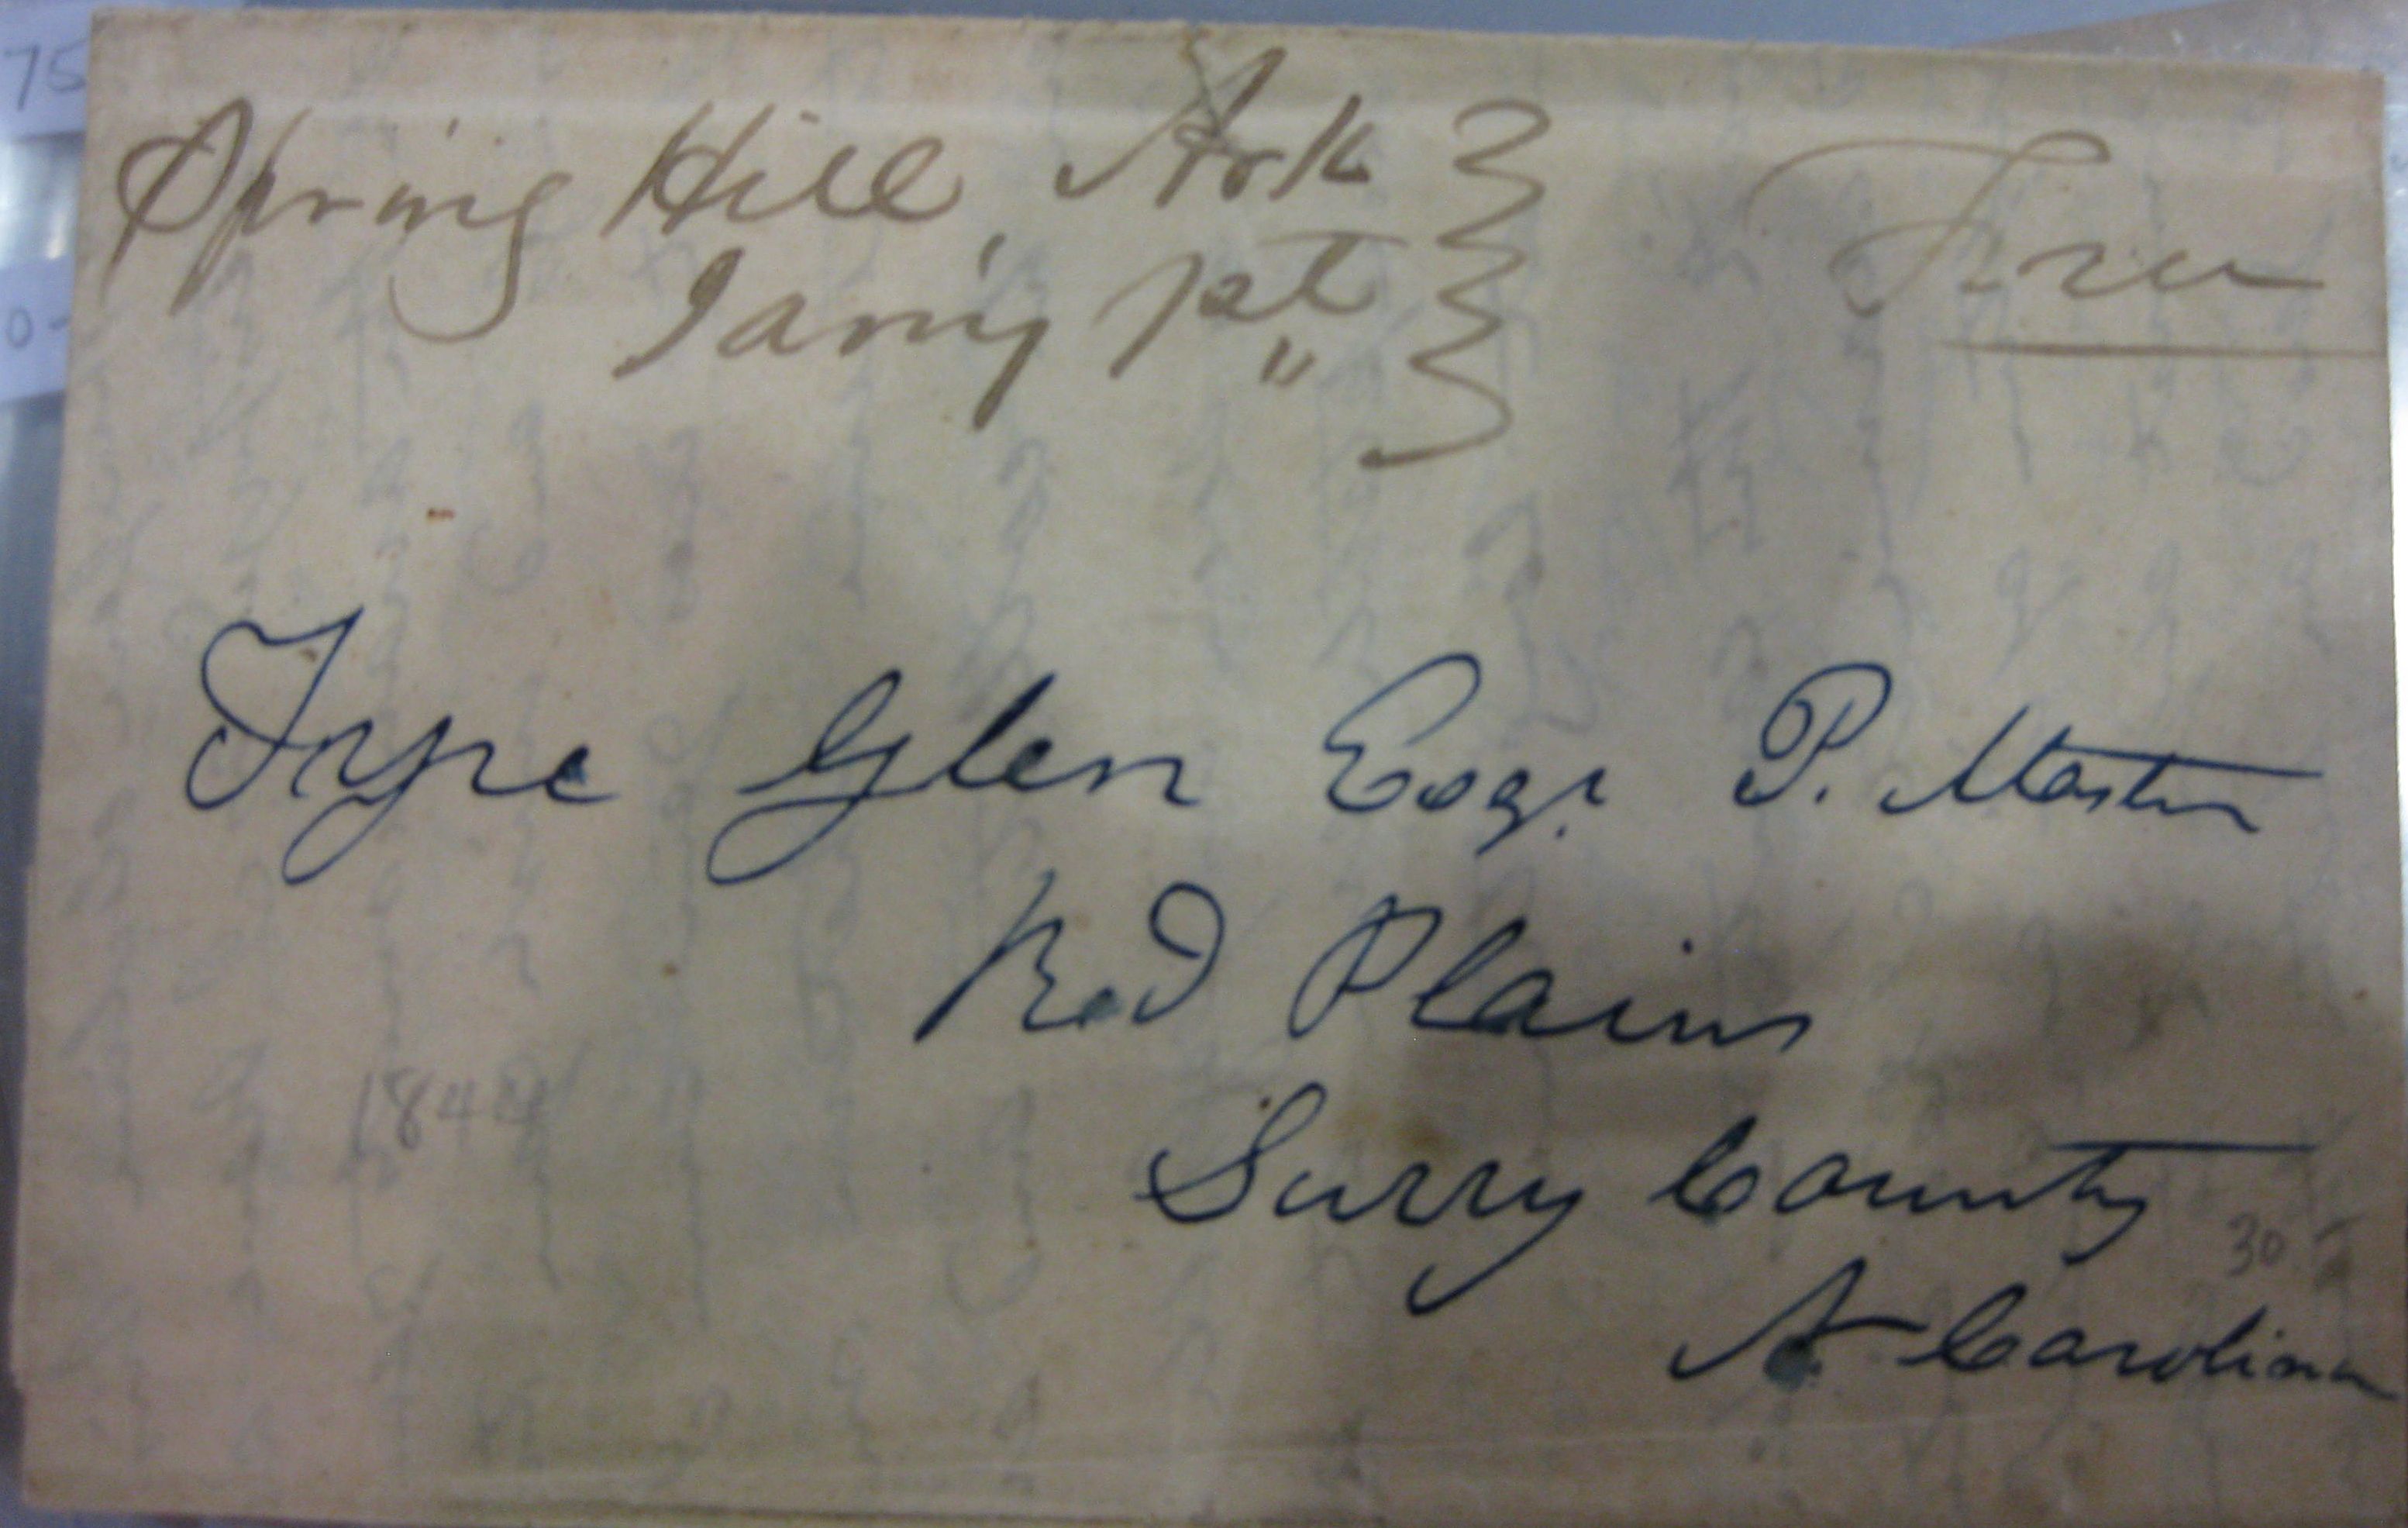 Spring Hill, Ark
Jan'y 1st
Free
Tyre Glen Esqr P. Master
Red Plains
Surry County
N. Carolina
1844
30
75
0-